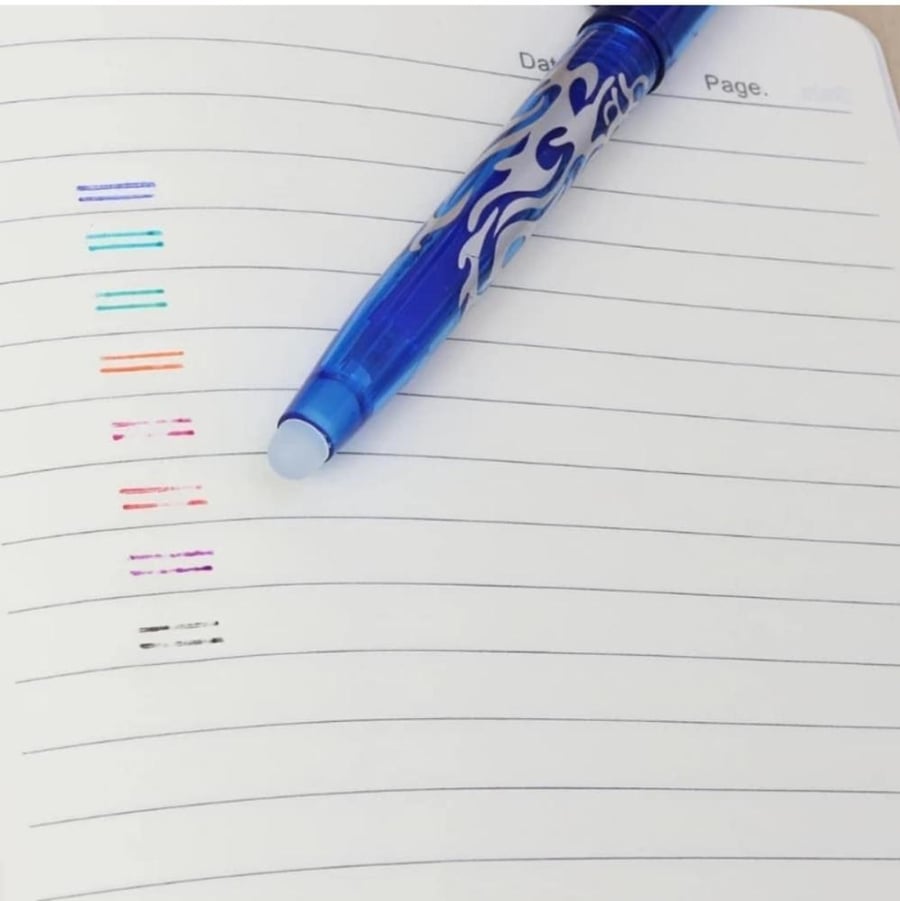 Dat
Page.